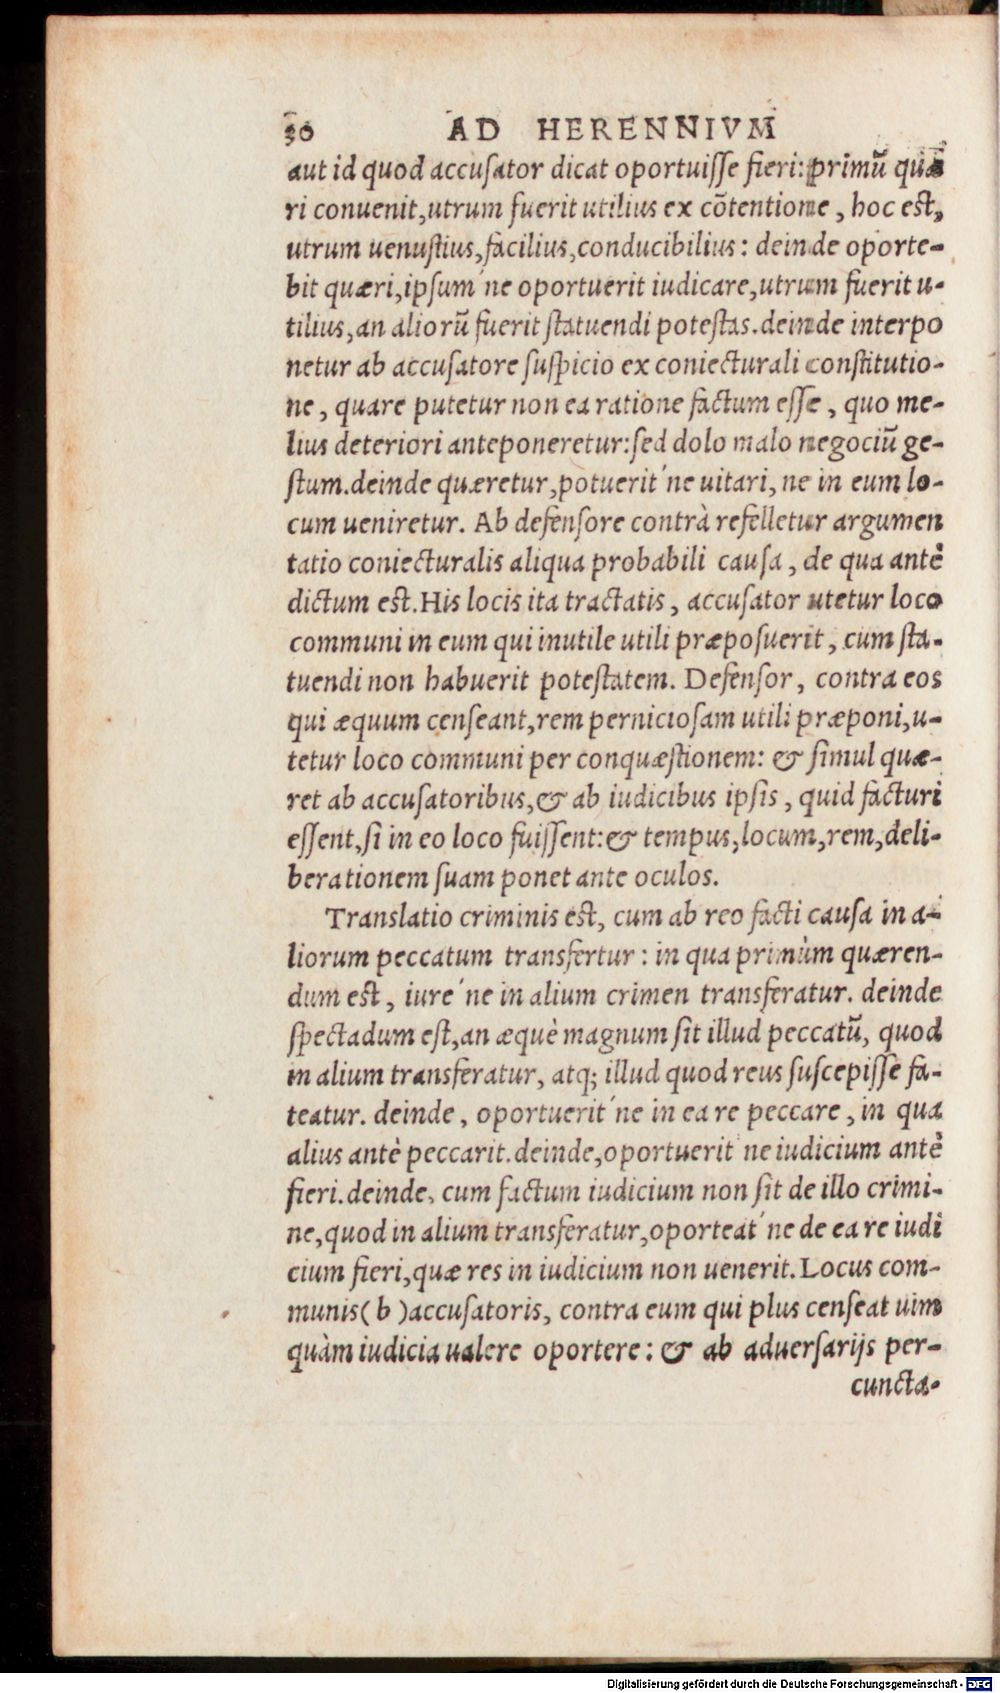 30 AD HERENNIVM
aut id quod accusator dicat oportuisse fieri: primũ quæ
ri conuenit, utrum fuerit utilius ex cõtentione, hoc est,
utrum uenustius, facilius, conducibilius: deinde oporte-
bit quæri, ipsum´ne oportuerit iudicare, utrum fuerit u-
tilius, an aliorũ fuerit statuendi potestas. deinde interpo
netur ab accusatore suspicio ex coniecturali constitutio-
ne, quare putetur non ea ratione factum esse, quo me-
lius deteriori anteponeretur: sed dolo malo negociũ ge-
stum. deinde quæretur, potuerit´ne uitari, ne in eum lo-
cum ueniretur. Ab defensore contrà refelletur argumen
tatio coniecturalis aliqua probabili causa, de qua antè
dictum est. His locis ita tractatis, accusator utetur loco
communi in eum qui inutile utili præposuerit, cum sta-
tuendi non habuerit potestatem. Defensor, contra eos
qui æquum censeant, rem perniciosam utili præponi, u-
tetur loco communi per conquæstionem: & simul quæ-
ret ab accusatoribus, & ab iudicibus ipsis, quid facturi
essent, si in eo loco fuissent: & tempus, locum, rem, deli-
berationem suam ponet ante oculos.
Translatio criminis est, cum ab reo facti causa in a-
liorum peccatum transfertur: in qua primùm quæren-
dum est, iure´ne in alium crimen transferatur. deinde
spectadum est, an æquè magnum sit illud peccatũ, quod
in alium transferatur, atq; illud quod reus suscepisse fa-
teatur. deinde, oportuerit´ne in ea re peccare, in qua
alius antè peccarit. deinde, oportuerit´ne iudicium antè
fieri. deinde, cum factum iudicium non sit de illo crimi-
ne, quod in alium transferatur, oporteat´ne de ea re iudi
cium fieri, quæ res in iudicium non uenerit. Locus com-
munis (b) accusatoris, contra eum qui plus censeat uim
quàm iudicia ualere oportere: & ab aduersarijs per-
cuncta-
Digitalisierung gefördert durch die Deutsche Forschungsgemeinschaft - DFG